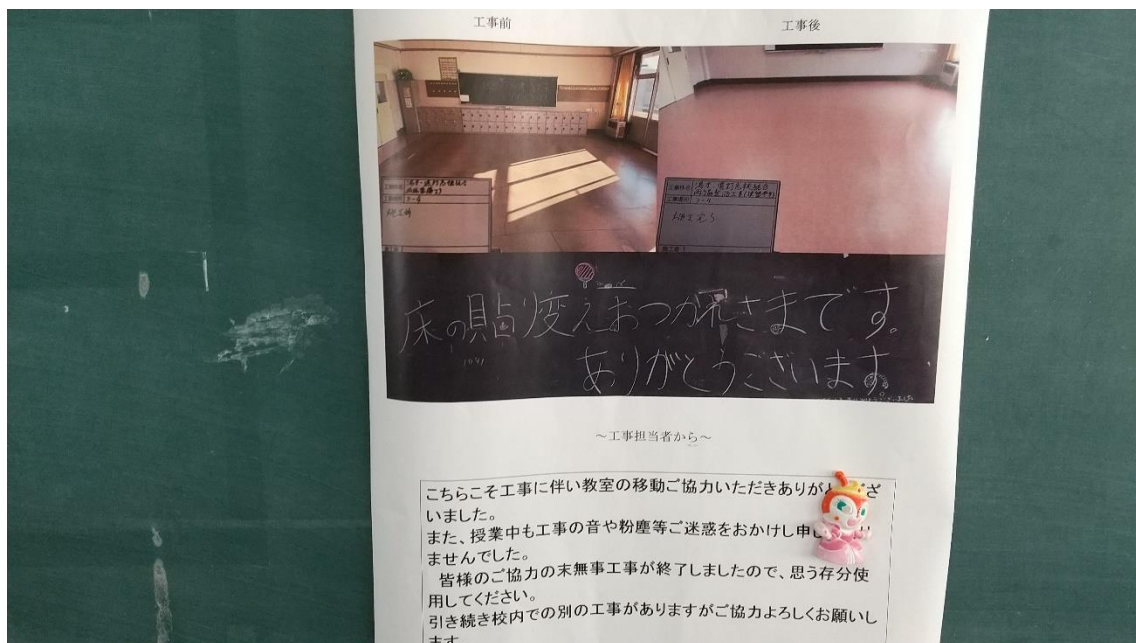 工事前
工事後
施工前
施工完了
床の貼り変えおつかれさまです。
ありがとうございます。
～工事担当者から～
こちらこそ工事に伴い教室の移動ご協力いただきありがとござ
いました。
また、授業中も工事の音や粉塵等ご迷惑をおかけし申し
ませんでした。
皆様のご協力の末無事工事が終了しましたので、思う存分使
用してください。
引き続き校内での別の工事がありますがご協力よろしくお願いし
ます